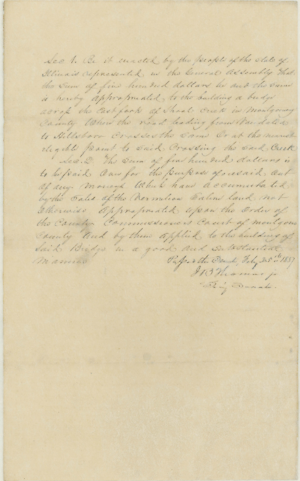 Sec 1. Be it enacted by the people of the state of
Illinois represented in the General Assembly That
the sum of five hundred dollars be and the same
is hereby appropriated to the building a bridge
across the West fork of Shoal Creek in Montgomery
County Where the road leading from Vandalia
to Hillsboro Crosses the same or at the nearest
eligible point to said Crossing the said Creek
Sec 2. The sum of five hundred dollars is
to be paid for the purpose aforesaid out
of any moneys Which have accumulated
by the sales of the Vermilion Saline land not
otherwise appropriated, upon the order of
the County Commissioners Court of Montgomery
County And by them applied to the building of
said Bridge in a good and Substantial
Manner
Passed the Senate Feby 22nd 1837
J B Thomas jr